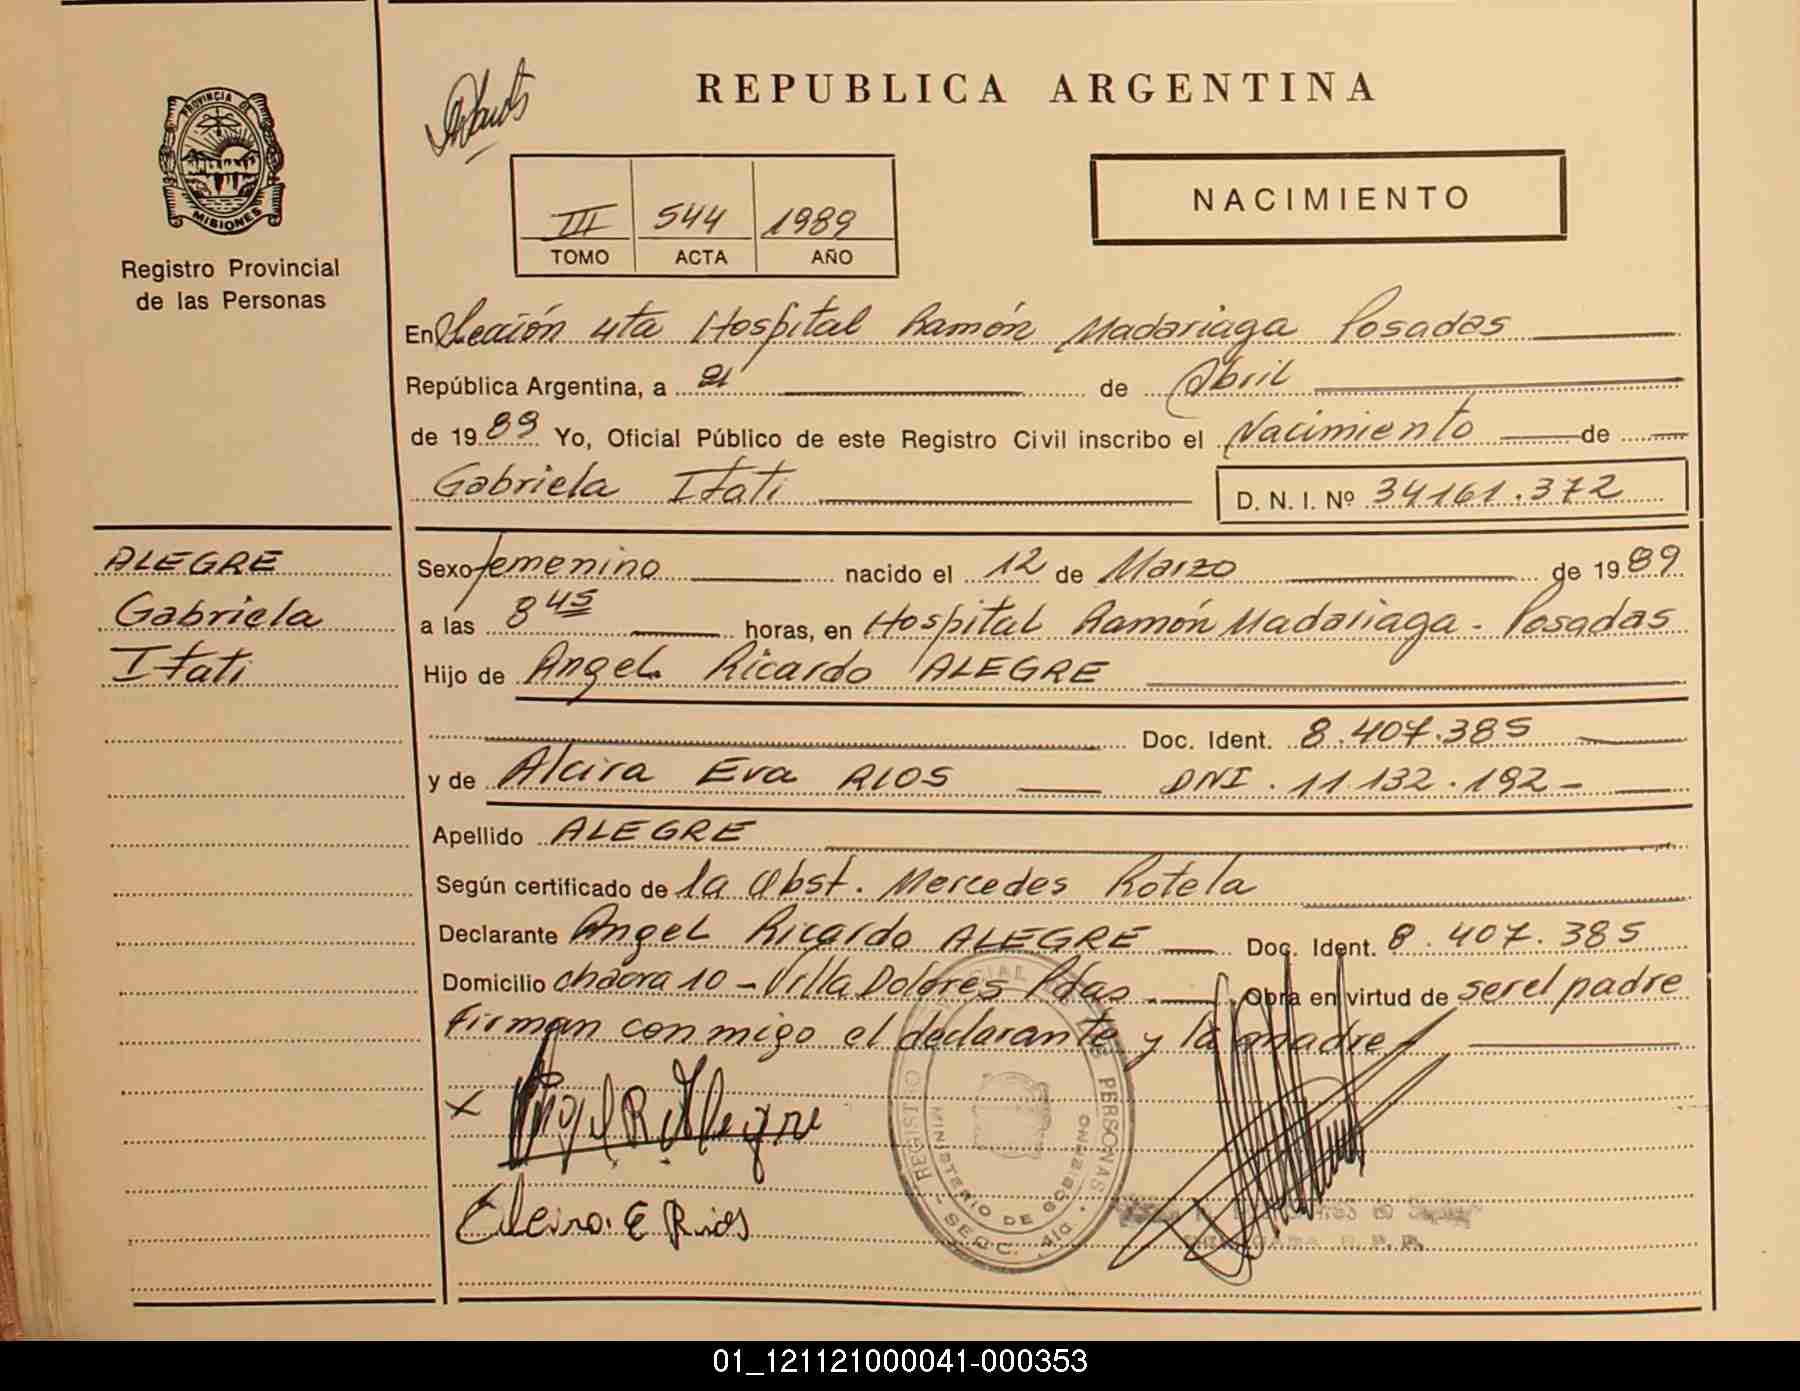 REPUBLICA ARGENTINA
PROVINCIA DE
MISIONES
Registro Provincial
de las Personas
III 544 1989
TOMO ACTA AÑO
NACIMIENTO
En Sección 4ta Hospital Ramón Madariaga Posadas
República Argentina, a 21 de Abril
de 1989 Yo, Oficial Público de este Registro Civil inscribo el Nacimiento de
Gabriela Itati D. N. I. Nº 34161.372
ALEGRE
Gabriela
Itati
Sexo femenino nacido el 12 de Marzo de 1989
a las 8 45 horas, en Hospital Ramón Madariaga - Posadas
Hijo de Angel Ricardo ALEGRE
Doc. Ident. 8.407.385
y de Alcira Eva RIOS DNI . 11.132.192 -
Apellido ALEGRE
Según certificado de la Obst. Mercedes Rotela
Declarante Angel Ricardo ALEGRE Doc. Ident. 8.407.385
Domicilio chacra 10 - Villa Dolores Pdas. Obra en virtud de ser el padre
Firman conmigo el declarante y la madre
x Angel R. Alegre
E Rios
REGISTRO PERSONAS
MINISTERIO DE GOBIERNO
SECC. 4ta
01_121121000041-000353